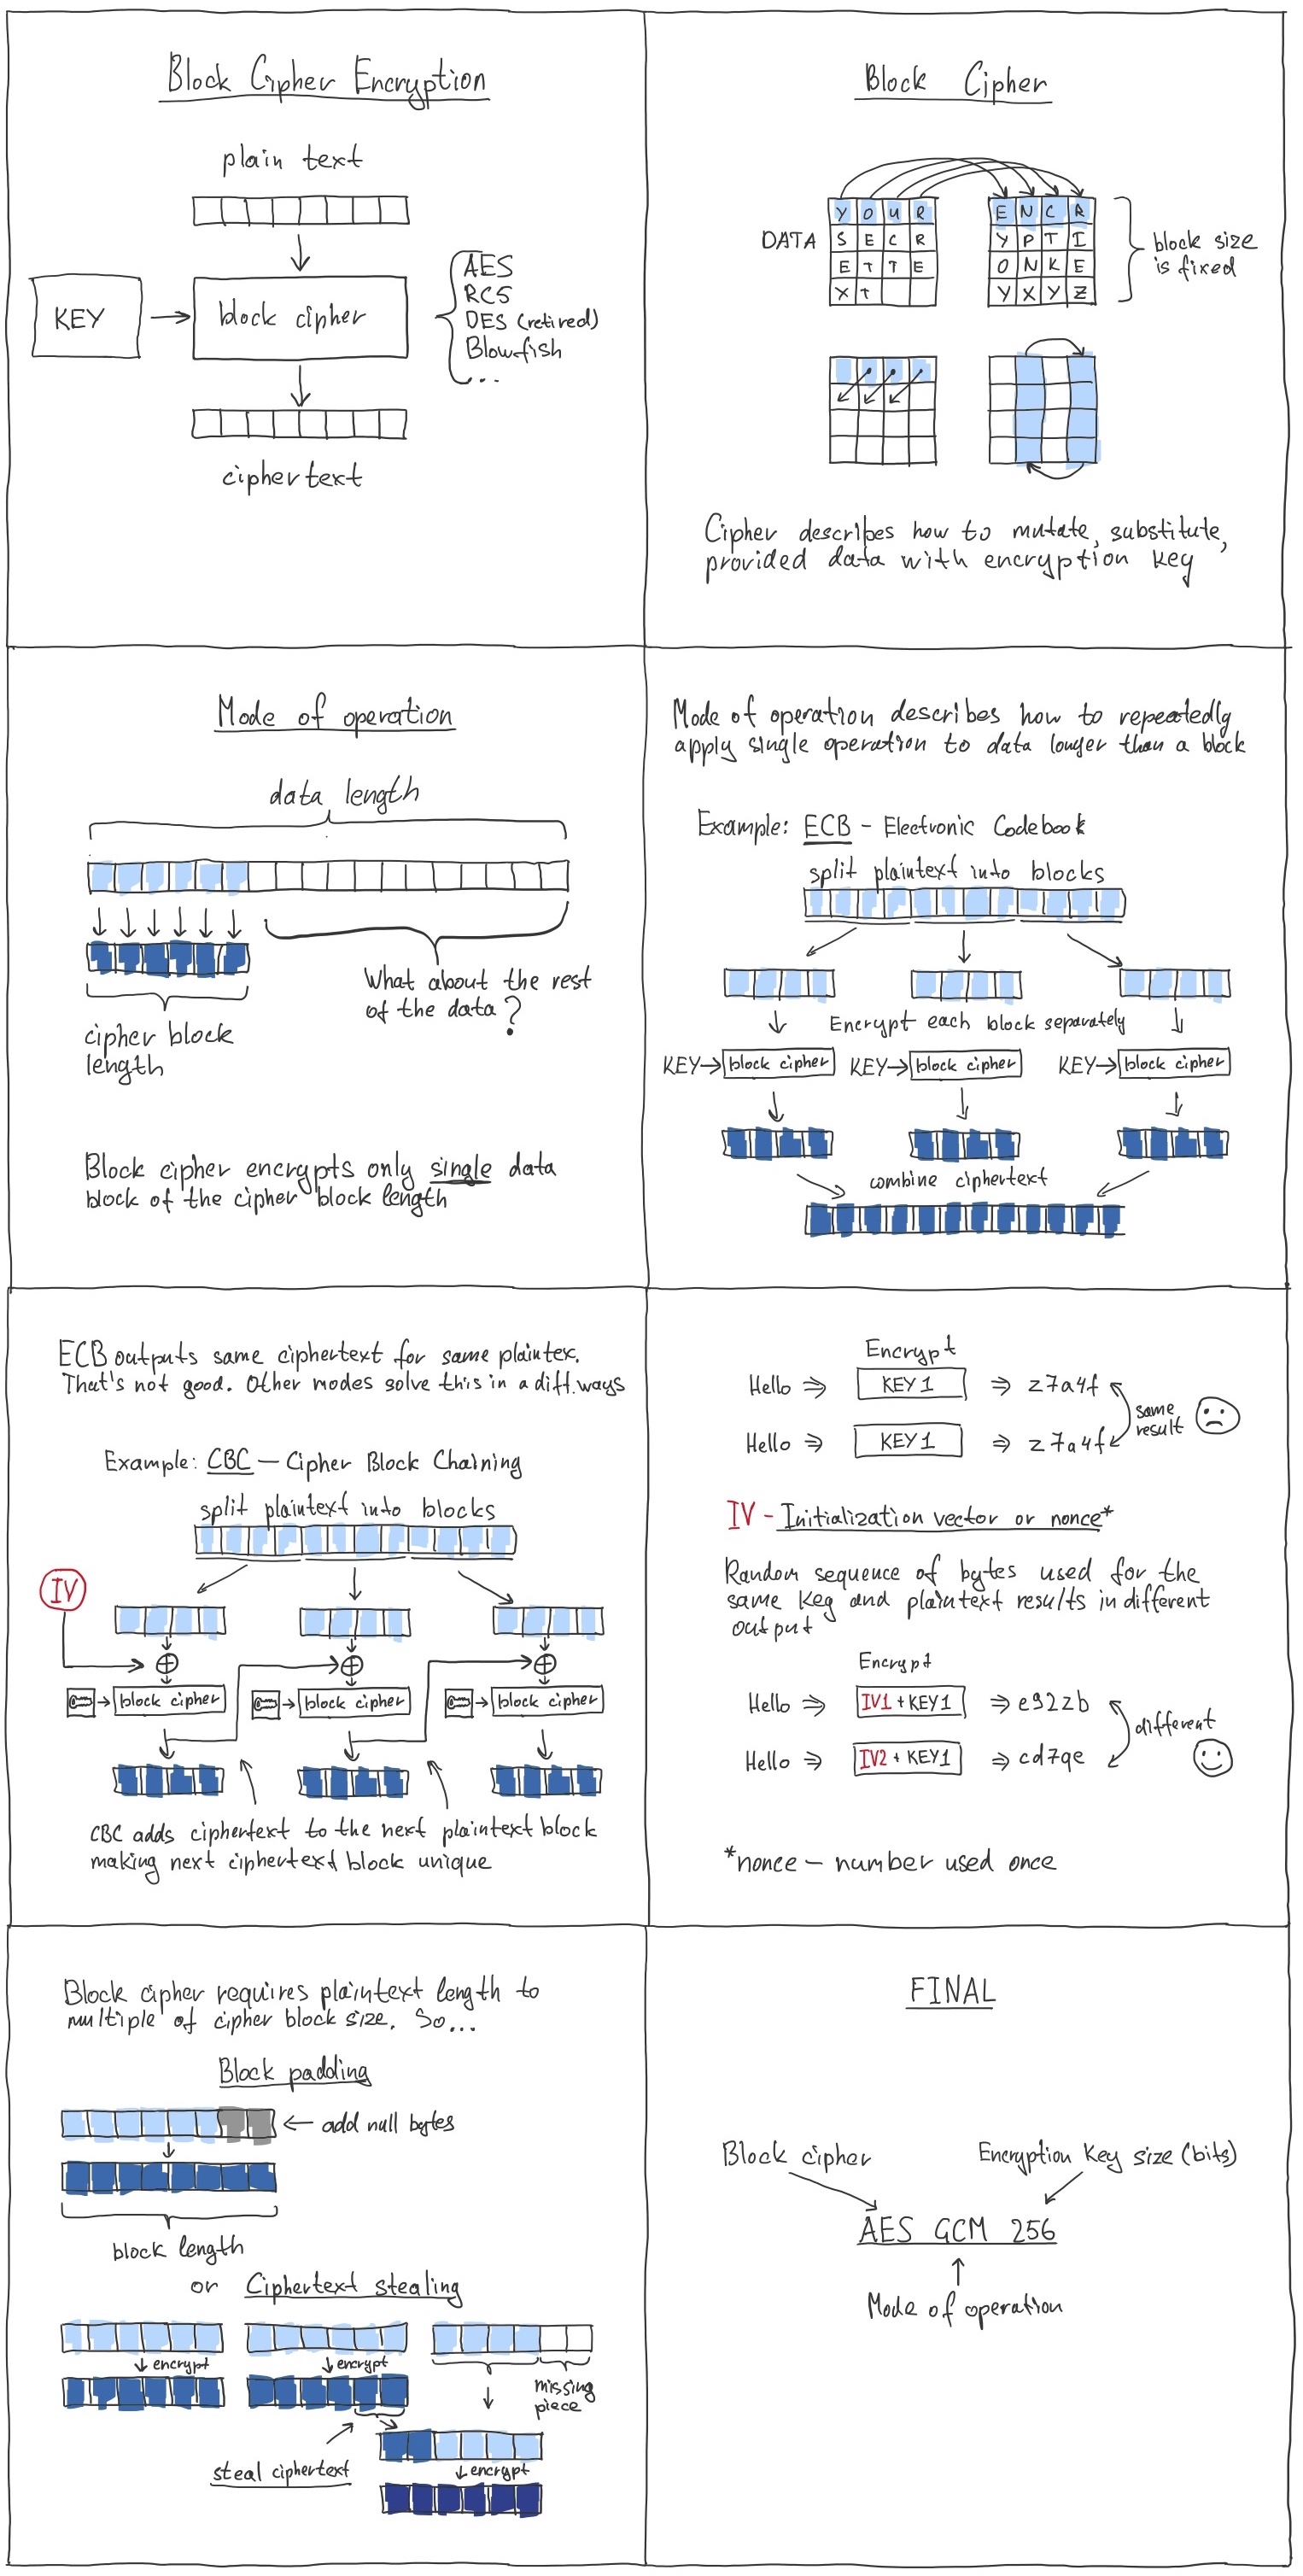 Block Cipher Encryption
plain text
KEY
block cipher
AES
RC5
DES (retired)
Blowfish
...
ciphertext
Block Cipher
DATA
Y O U R
S E C R
E T T E
X T
E N C R
Y P T I
O N K E
Y X Y Z
block size
is fixed
Cipher describes how to mutate, substitute,
provided data with encryption key
Mode of operation
data length
What about the rest
of the data?
cipher block
length
Block cipher encrypts only single data
block of the cipher block length
Mode of operation describes how to repeatedly
apply single operation to data longer than a block
Example: ECB - Electronic Codebook
split plaintext into blocks
Encrypt each block separately
KEY→ block cipher KEY→ block cipher KEY→ block cipher
combine ciphertext
ECB outputs same ciphertext for same plaintex.
That's not good. Other modes solve this in a diff. ways
Example: CBC — Cipher Block Chaining
split plaintext into blocks
IV
block cipher block cipher block cipher
CBC adds ciphertext to the next plaintext block
making next ciphertext block unique
Encrypt
Hello ⇒ KEY 1 ⇒ z7a4f
Hello ⇒ KEY 1 ⇒ z7a4f
same
result
IV - Initialization vector or nonce*
Random sequence of bytes used for the
same key and plaintext results in different
output
Encrypt
Hello ⇒ IV1 + KEY1 ⇒ e92zb
Hello ⇒ IV2 + KEY1 ⇒ cd7qe
different
*nonce — number used once
Block cipher requires plaintext length to
multiple of cipher block size. So...
Block padding
← add null bytes
block length
or Ciphertext stealing
encrypt
encrypt
missing
piece
steal ciphertext
encrypt
FINAL
Block cipher
Encryption key size (bits)
AES GCM 256
Mode of operation